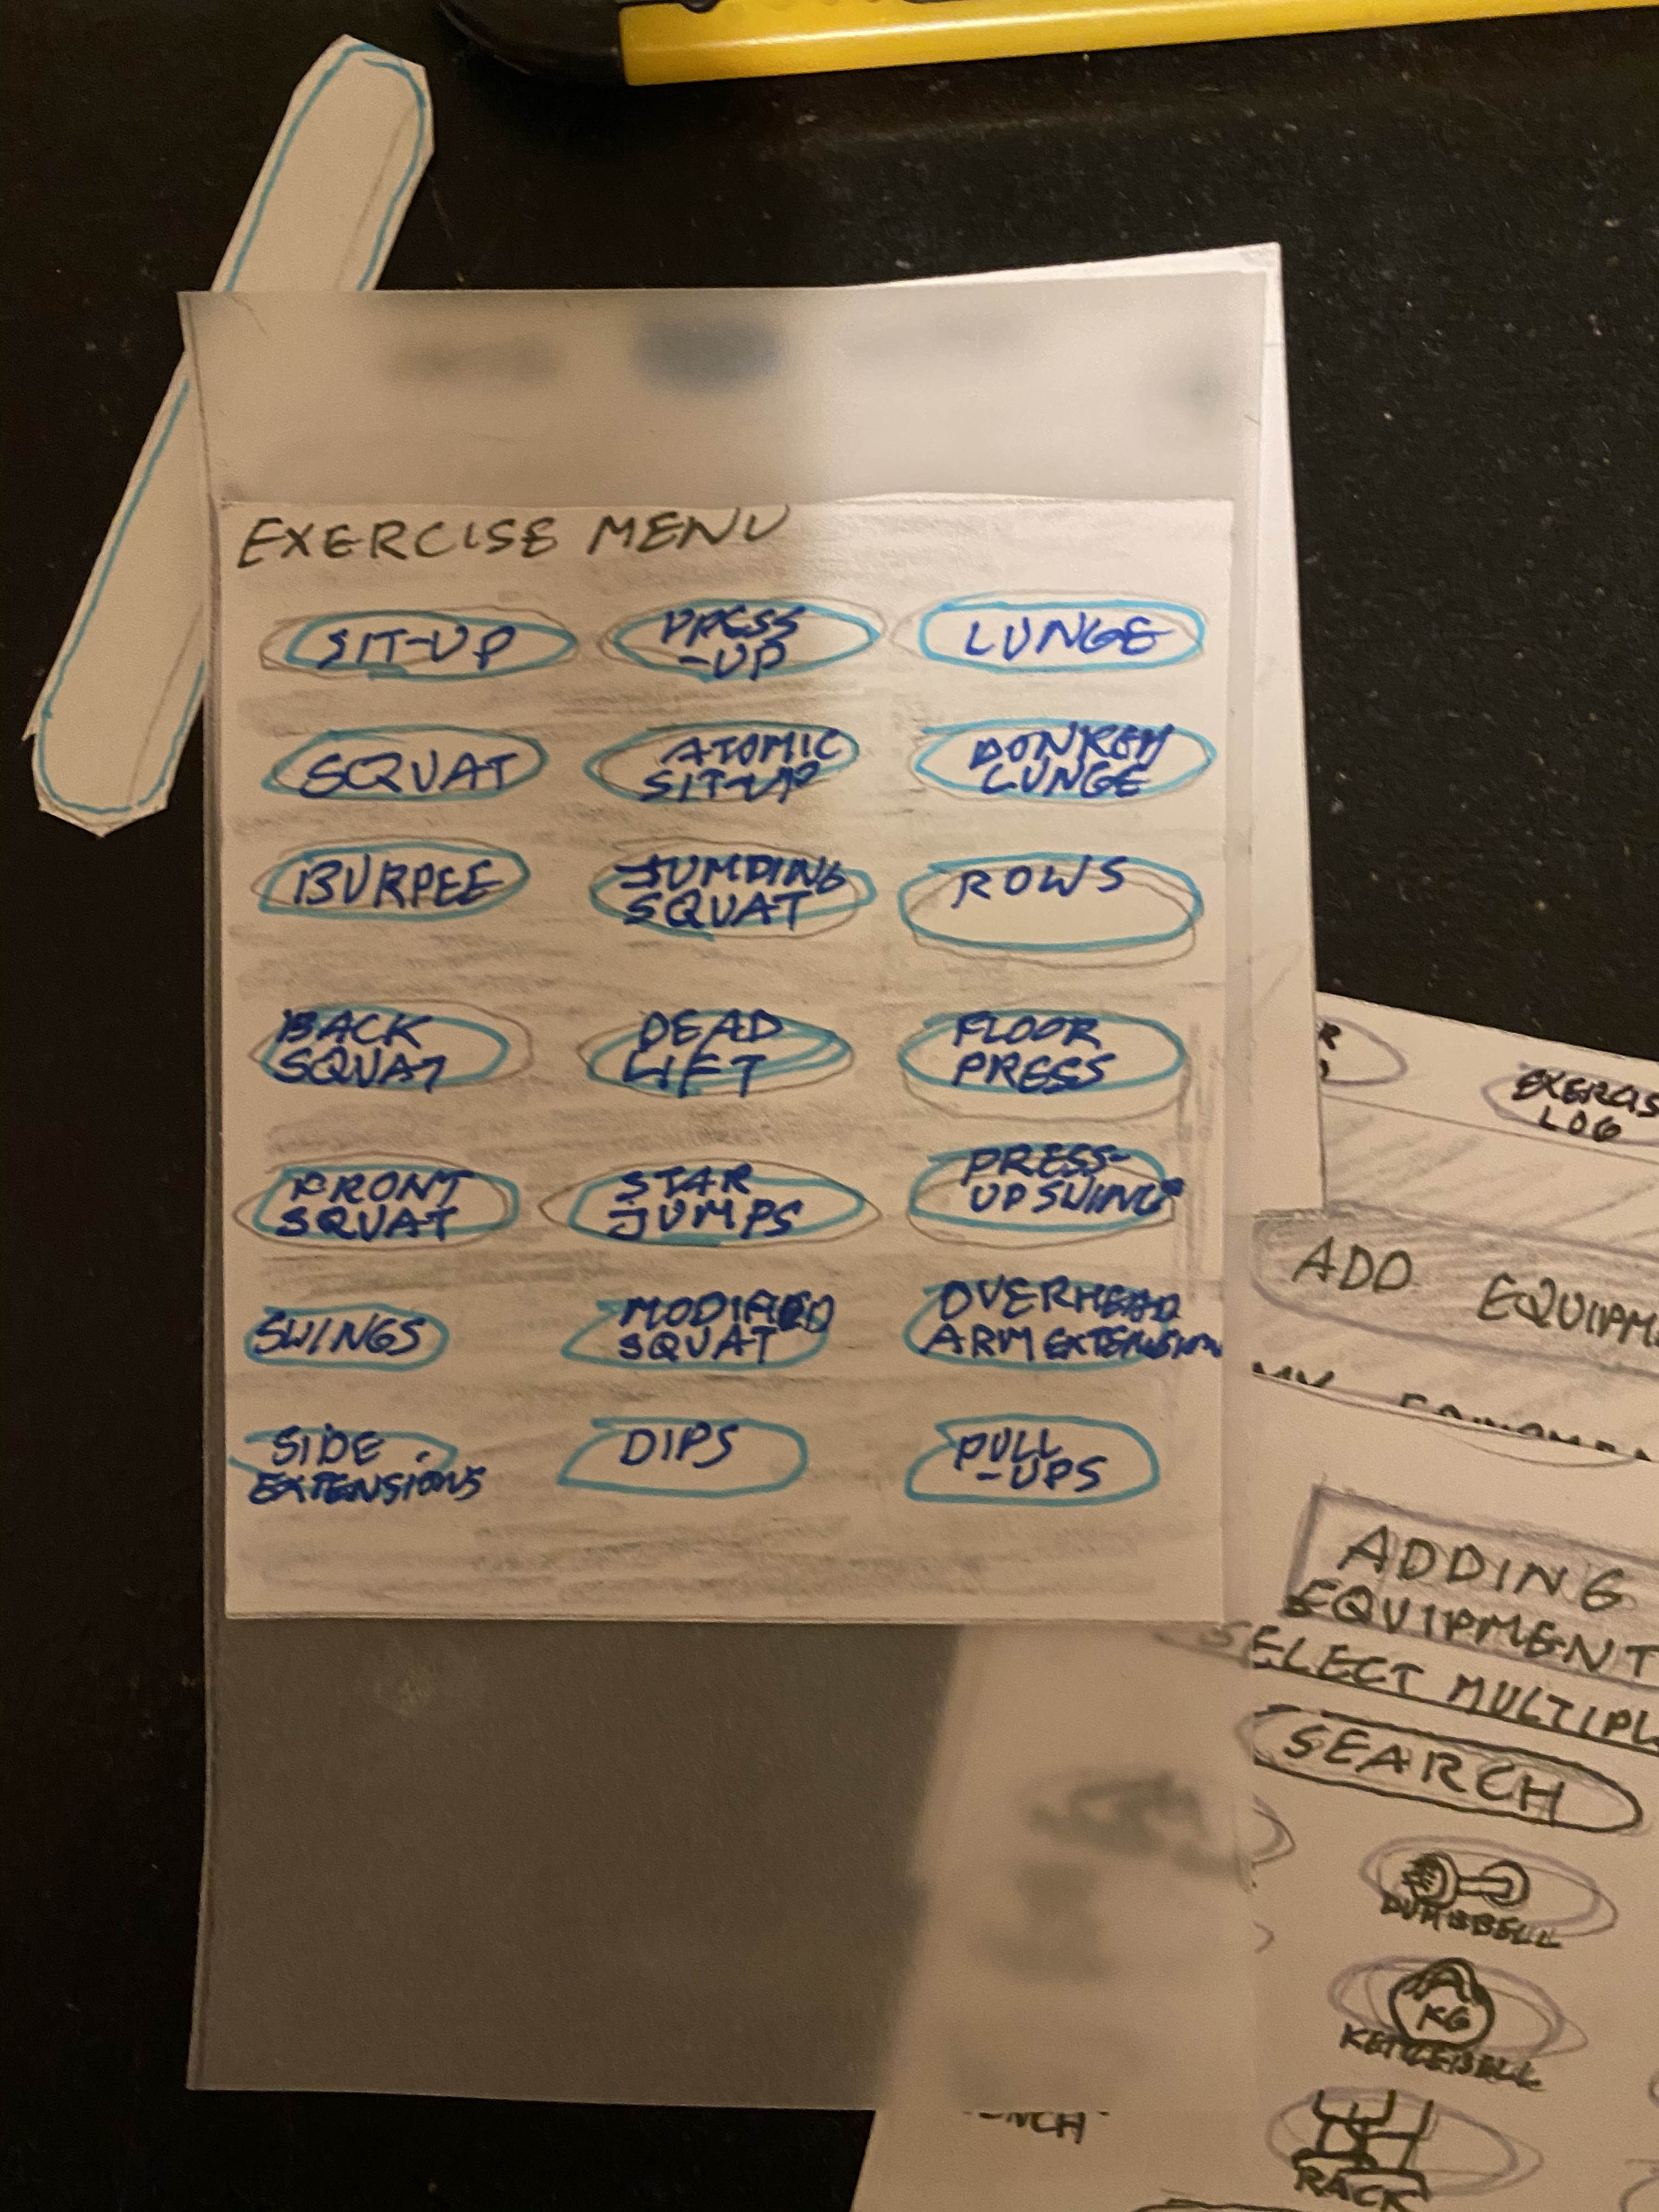 EXERCISE MENU
SIT-UP
PRESS
-UP
LUNGE
SQUAT
ATOMIC
SIT-UP
LUNGE
BURPEE
JUMPING
SQUAT
ROWS
BACK
SQUAT
DEAD
LIFT
FLOOR
PRESS
FRONT
SQUAT
STAR
JUMPS
PRESS-
UP SWING
SWINGS
MODIFIED
SQUAT
OVERHEAD
ARM EXTENSION
SIDE
EXTENSIONS
DIPS
PULL
-UPS
R
EXERCIS
LOG
ADD EQUIPM
MY
ADDING
EQUIPMENT
SELECT MULTIPL
SEARCH
DUMBBELL
KG
KETTLEBELL
RACK